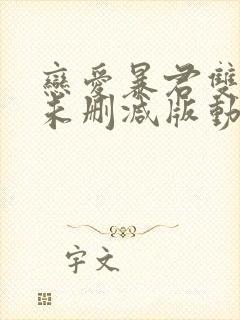 戀愛暴君雙
未刪減版動
字文